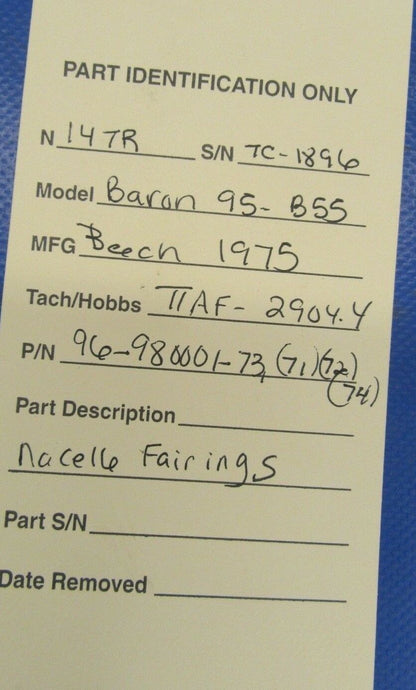 PART IDENTIFICATION ONLY
N 147R S/N TC-1896
Model Baron 95-B55
MFG Beech 1975
Tach/Hobbs TTAF- 2904.4
P/N 96-980001-73, (71)(72)
(74)
Part Description
Nacelle Fairings
Part S/N
Date Removed